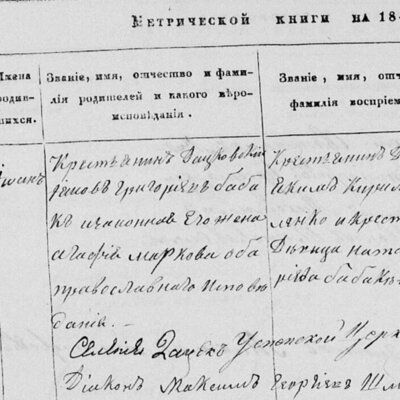 МЕТРИЧЕСКОЙ КНИГИ НА 18
Имена родив шихся.
Званіе, имя, отчество и фами-
лія родителей и какого вѣро-
исповѣданія.
Званіе, имя, отч
фамилія воспріем
Іоанъ
Крестьянинъ
Іаковъ Григоріевъ баба
къ изаконная Его жена
агафія маркова оба
православнаго Исповѣ
данія. —
Крестьянинъ
Екимъ Кирил
лѣнко и крест
Дѣвица ната
бабакъ
Успенской Церк
Діаконъ Максимъ Георгіевъ